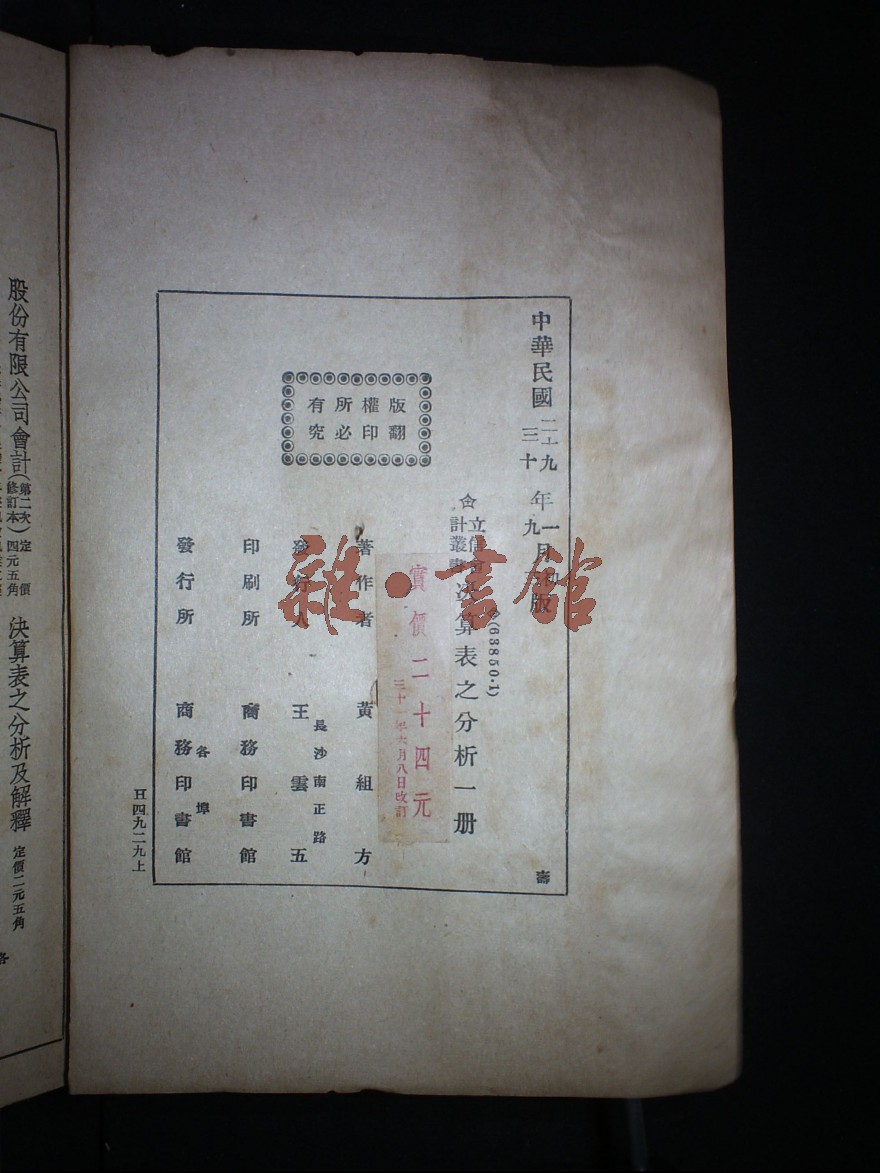 中華民國
二十九
三十
年
一
九
月
版
(63850·1)
立信會
計叢書
決算表之分析一册
實價二十四元
三十一年六月八日改訂
著作者 黃組方
發行人 王雲五
長沙南正路
印刷所 商務印書館
發行所 商務印書館
各埠
版權所有
翻印必究
壽
五四九二九上
雜·書館
股份有限公司會計
(第二次
修訂本)
定價
四元五角
決算表之分析及解釋
定價二元五角
各